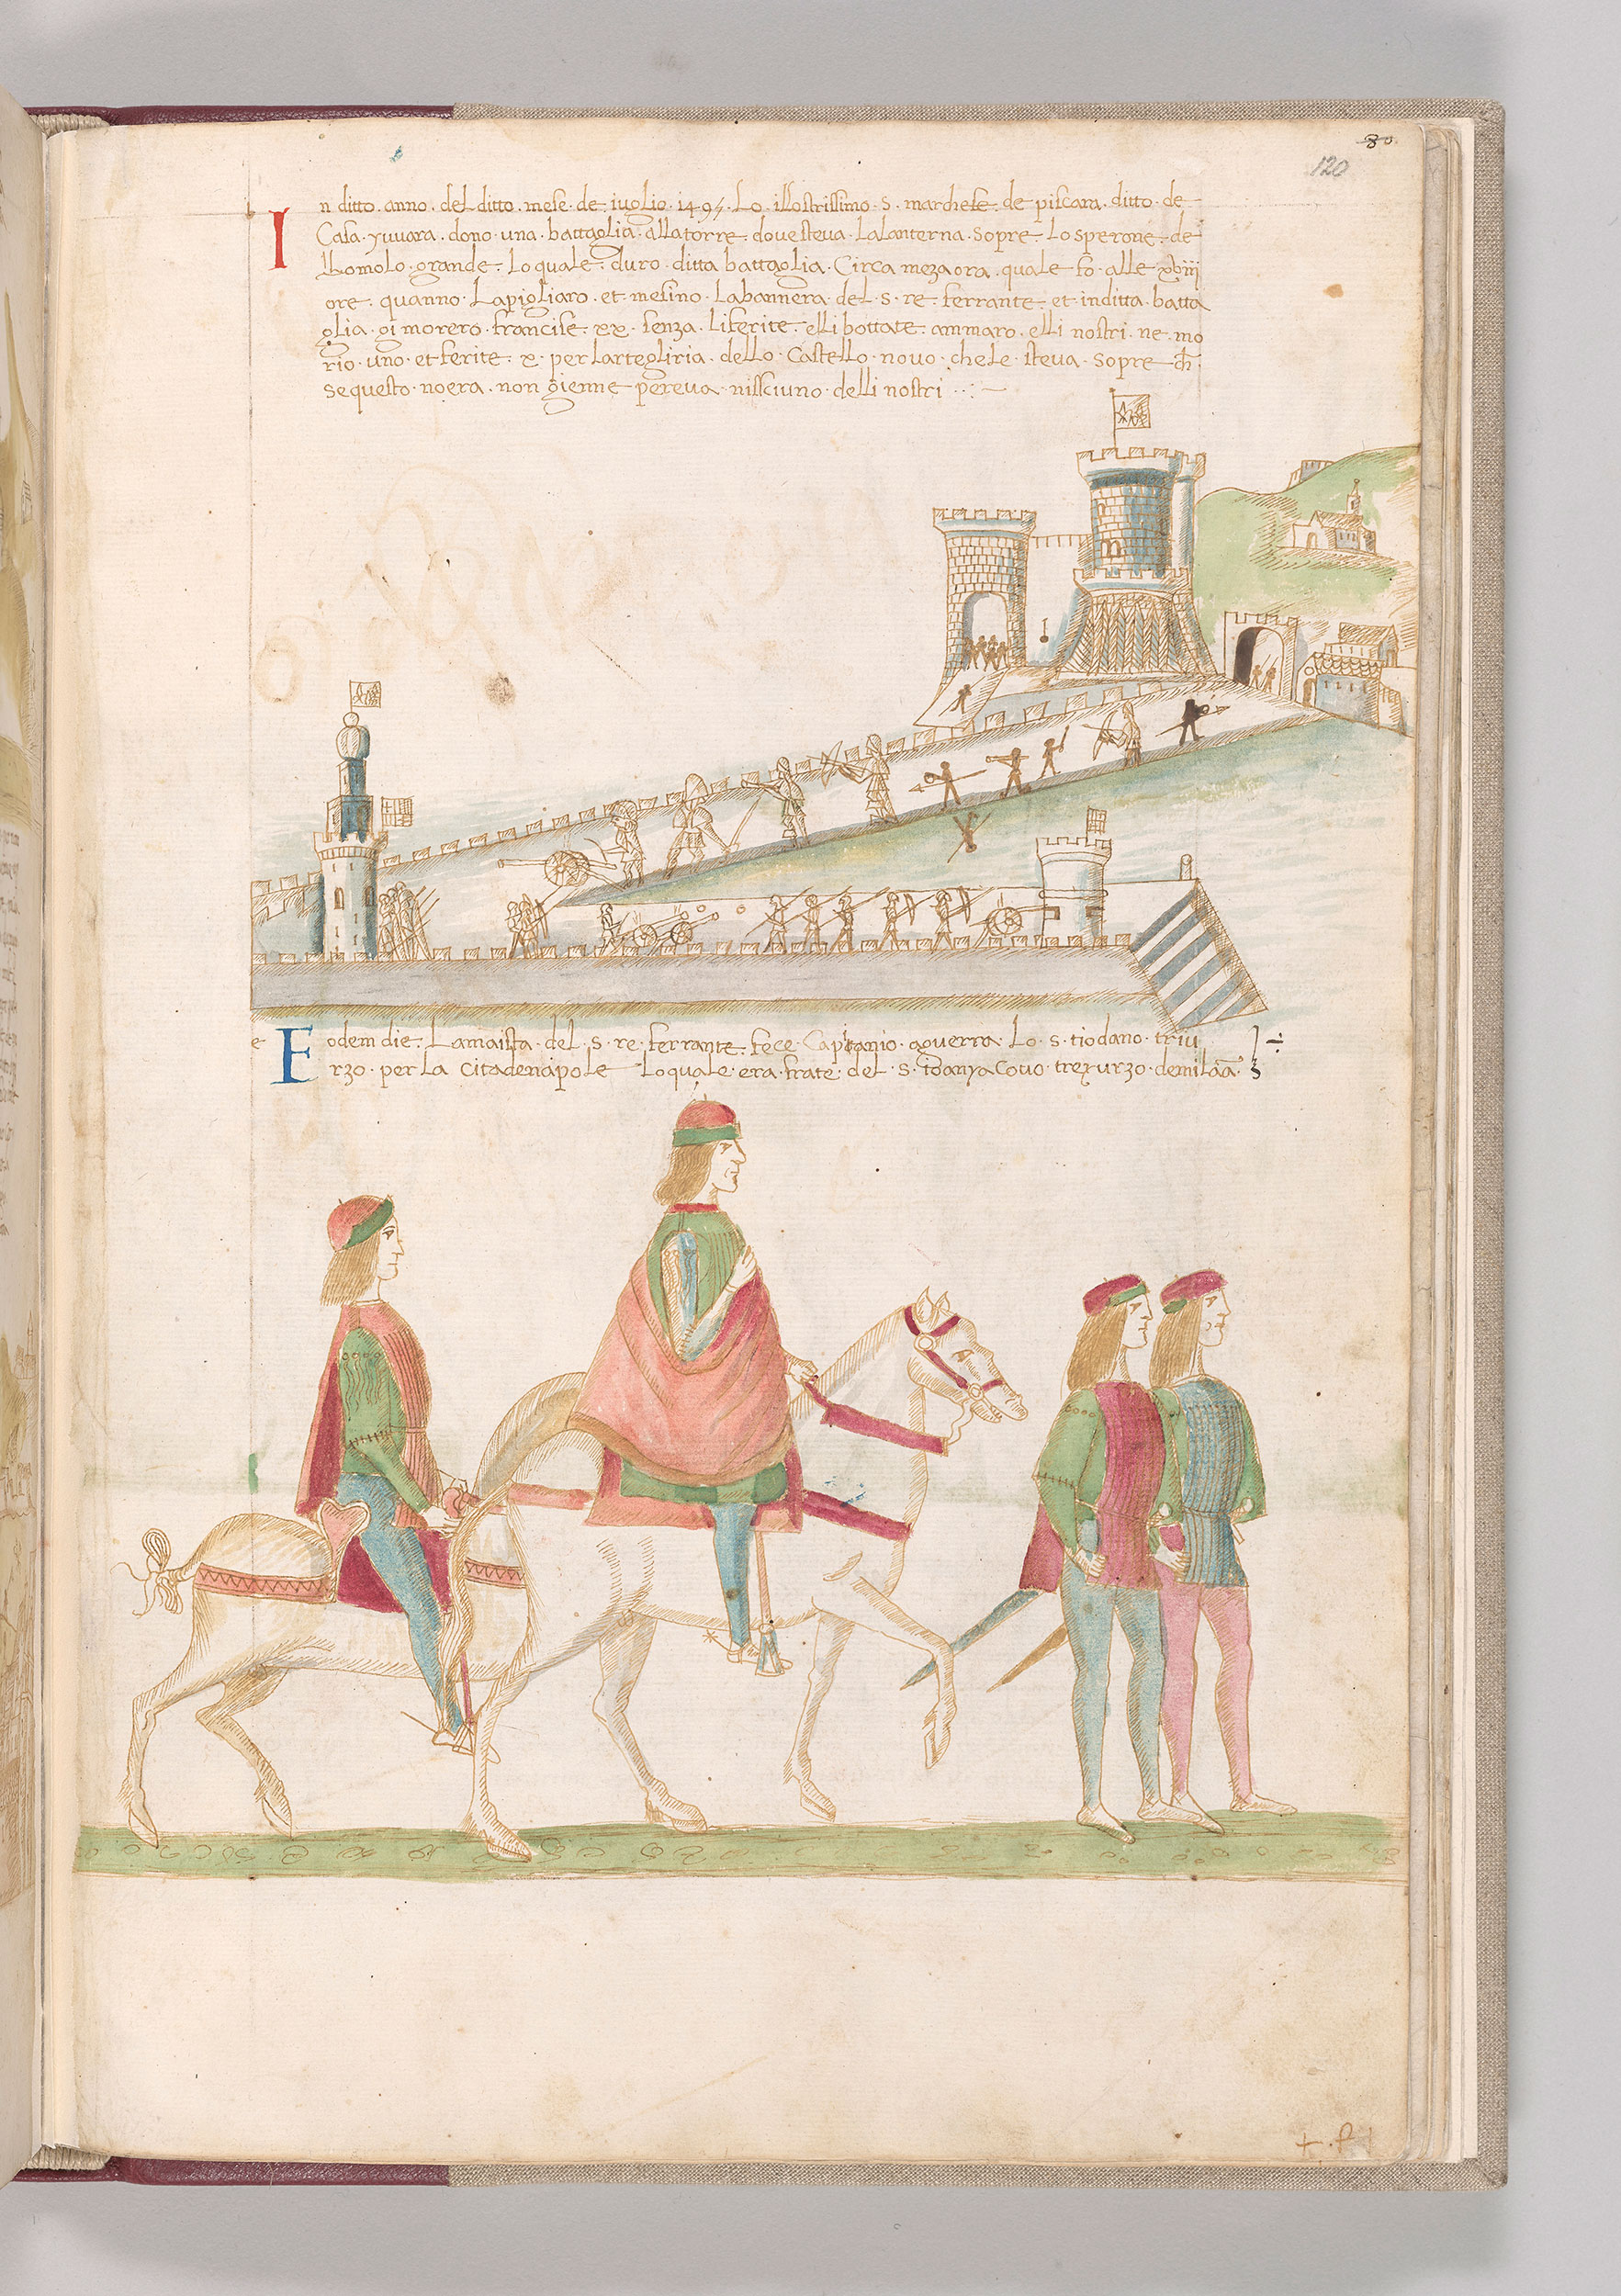 80
120
In ditto · anno · del ditto · mese · de · iuglio · 1495 · Lo · illostrissimo · s · marchese · de piscara · ditto · de
Casa · yuuara · dono · una · battaglia · alla torre · dove steva · La Lanterna · sopre · Lo sperone · de
lhomolo · grande · Lo quale · duro · ditta battaglia · Circa meza ora · quale fo · alle xviij
ore · quanno · La pigliaro · et · mesino · La bannera · del · s · re · ferrante · et in ditta · batta
glia · gi morero · francise · xx · senza · li ferite · elli bottate · ammaro · elli nostri · ne · mo
rio · uno · et ferite · x · per Lartegliria · dello · Castello · novo · che le · steva · sopre · ch
se questo · no era · non gienne pereva · nissciuno · delli nostri
e Eodem die · La maista · del · s · re · ferrante · fece Capitanio · a guerra · Lo · s · tiodano · triu
rzo · per La Cita de napole Lo quale · era · frate · del · s · ioanya Covo · treyurzo · de mila